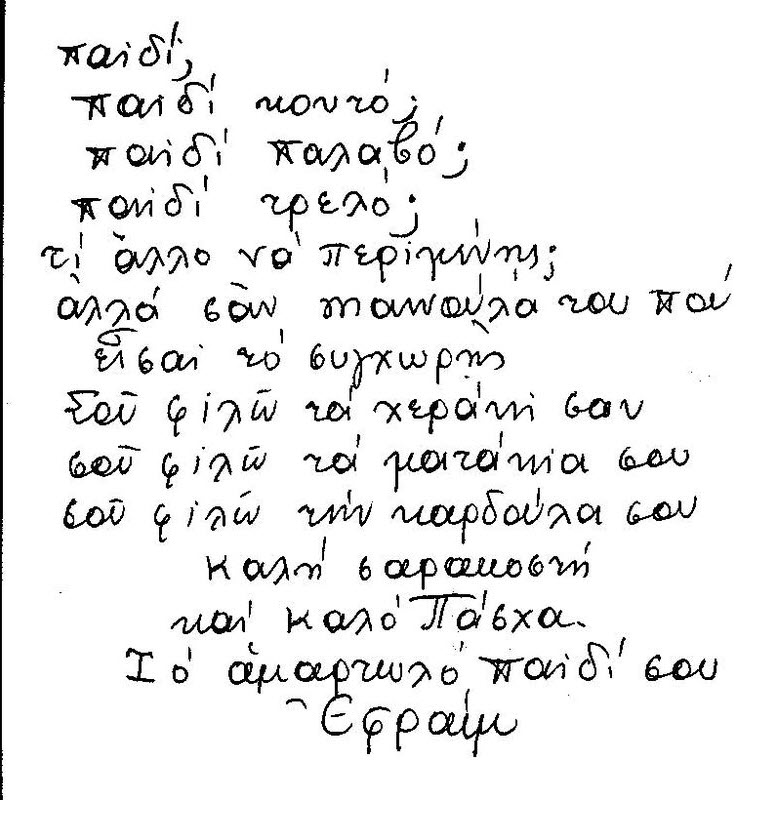 παιδί;
παιδί κουτό;
παιδί παλαβό;
παιδί τρελό;
τί ἄλλο νά περιμένης;
ἀλλά σάν μανούλα του πού
εἶσαι τό συγχωρῆς
Σοῦ φιλῶ τά χεράκι σου
σοῦ φιλῶ τά ματάκια σου
σοῦ φιλῶ τήν καρδούλα σου
καλή σαρακοστή
καί καλό Πάσχα.
Τό ἁμαρτωλό παιδί σου
Ἐφραίμ